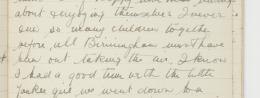 about enjoying themselves I never
see so many children together
before, all Birmingham must have
been out taking the air. I know
I had a good time with the little
Yankee girl we went down to a